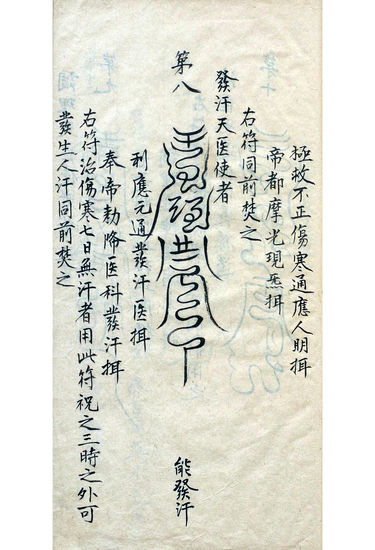 極救不正傷寒通應人明揖
帝都摩光現炁揖
右符同前焚之
發汗天医使者
第八
能發汗
利應元通發汗医揖
奉帝勅降医科發汗揖
右符治傷寒七日無汗者用此符祝之三時之外可
發生人汗同前焚之